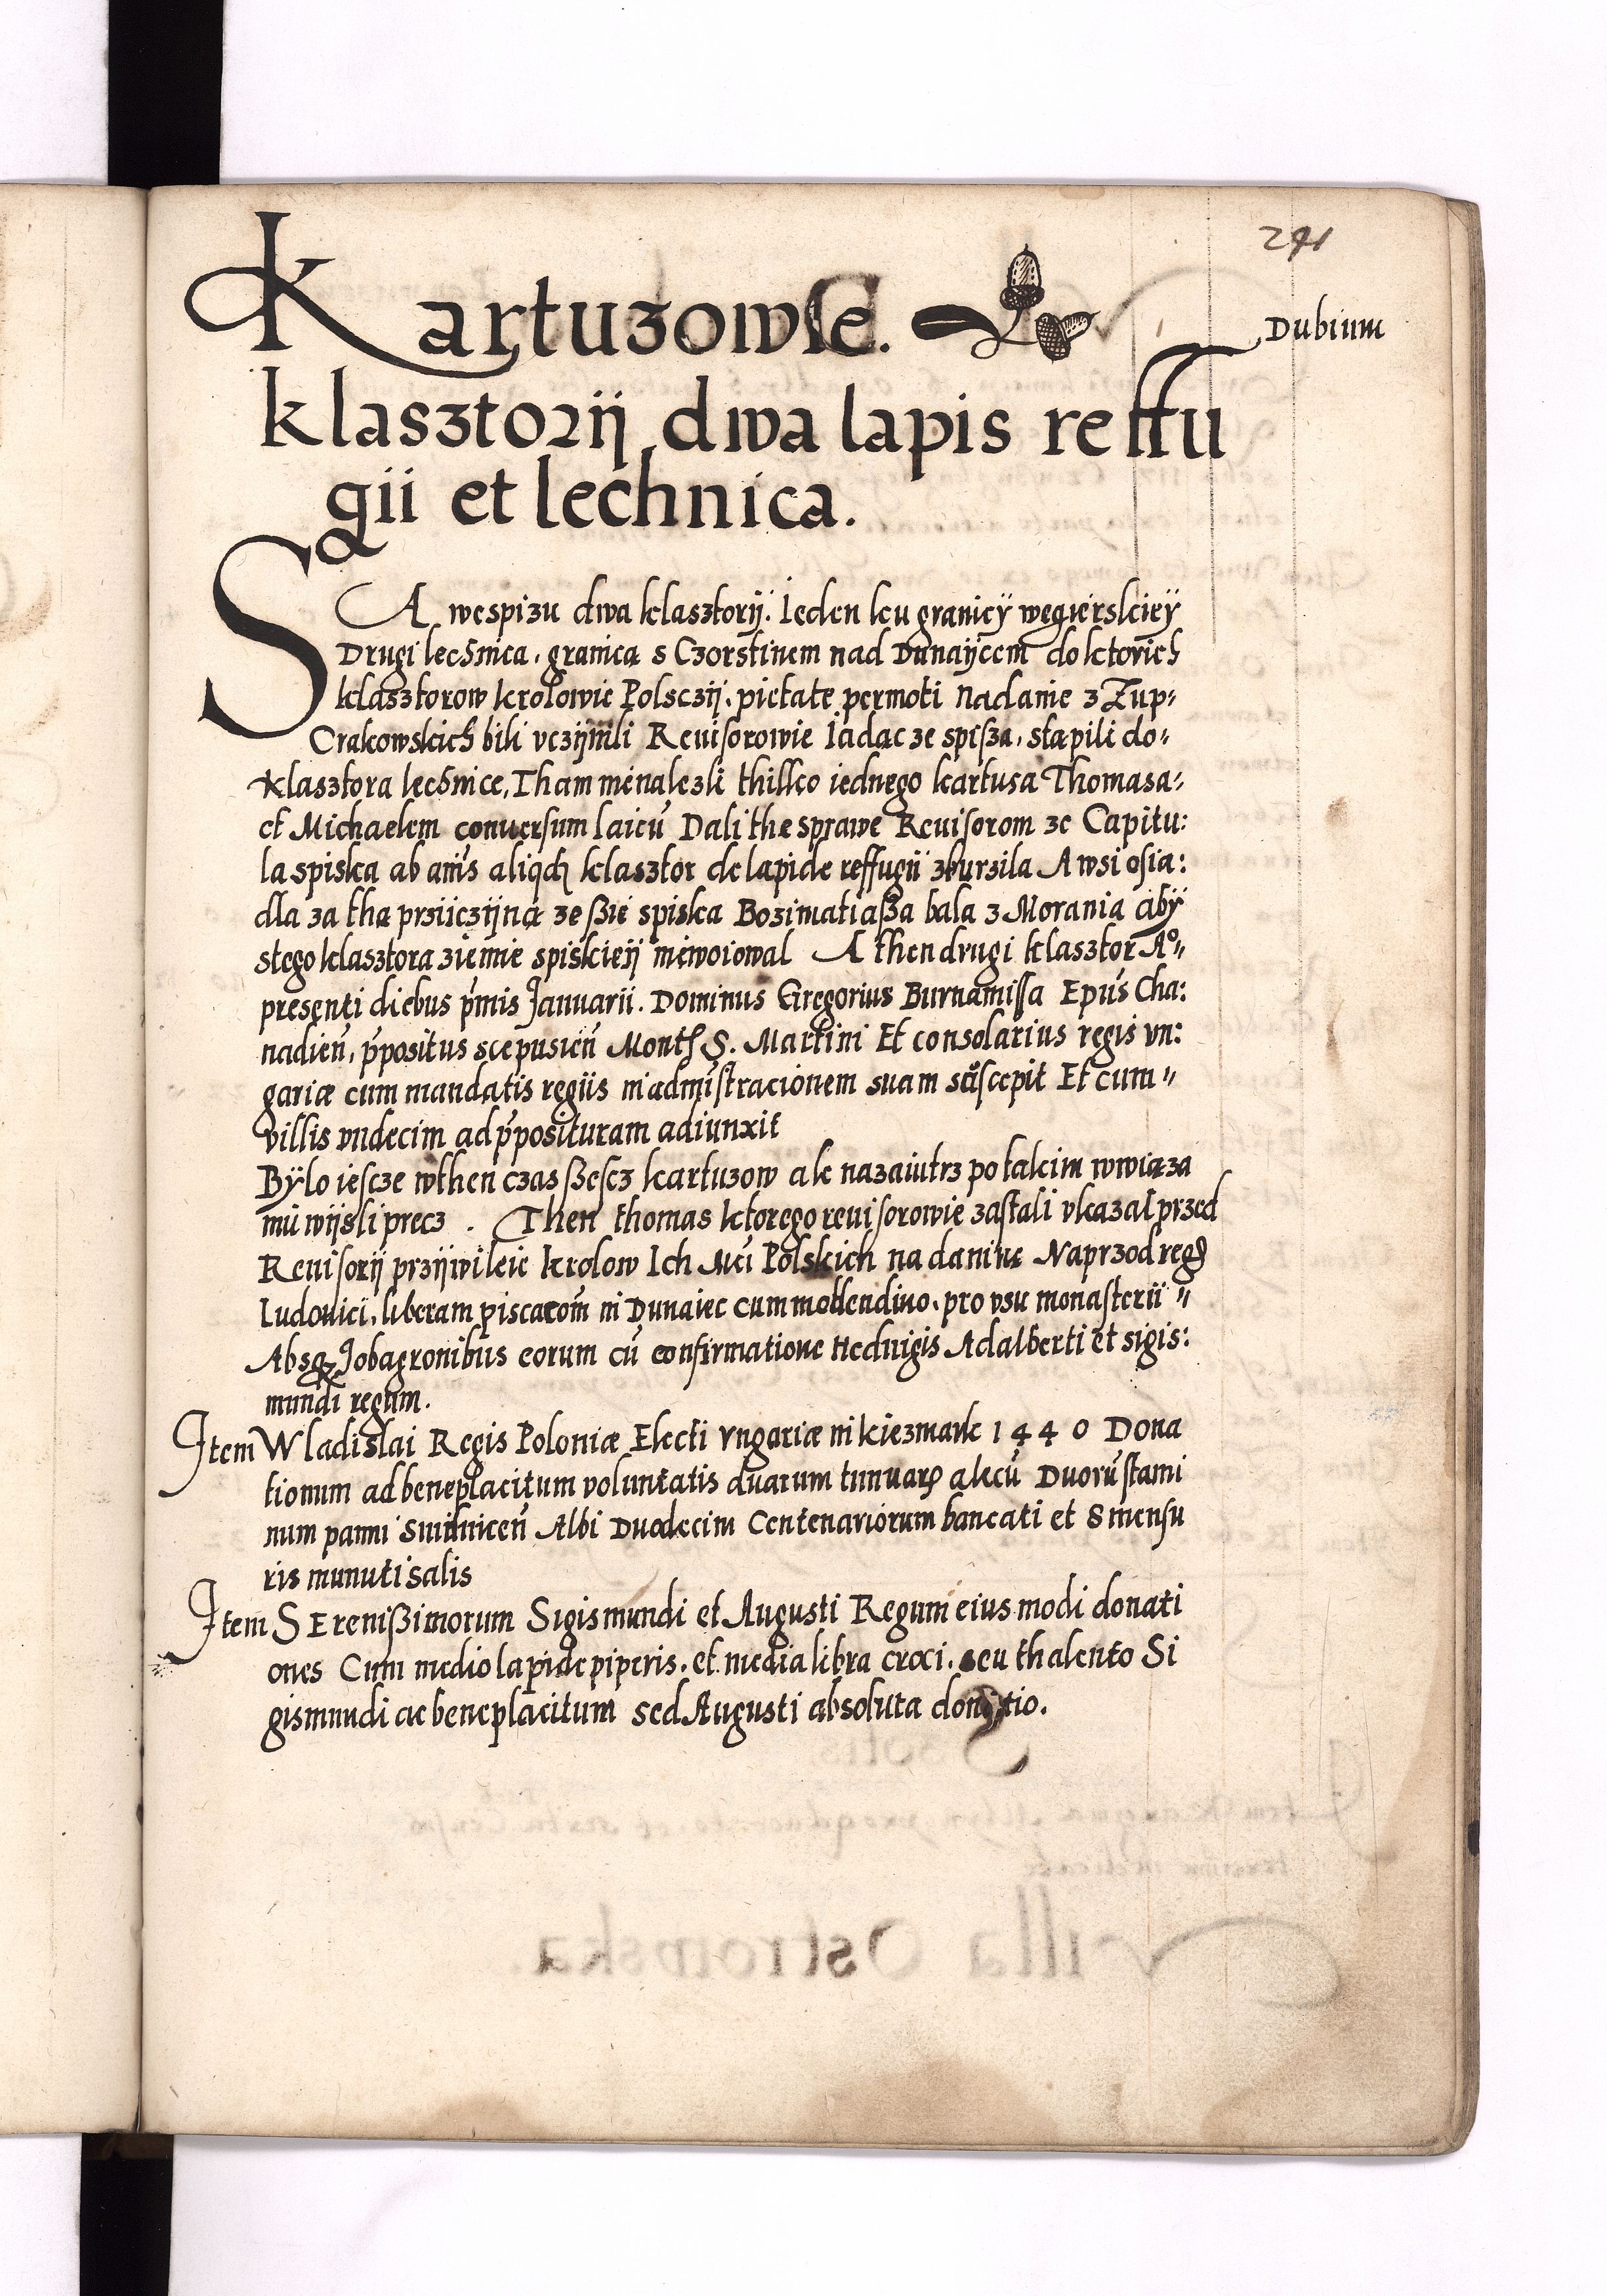 241
Kartuzowie.
Dubium
klasztorÿ dwa lapis reffu
gii et lechnica.
SA wespizu dwa klasztorÿ. Ieden ku granicÿ wegierskieÿ
Drugi lechnica, granica s Czorstinem nad Dunaÿcem do ktorich
klasztorow krolowie Polsczÿ, pietate permoti nadanie z Zup⸗
Crakowskich bili vczÿnili Reuisorowie Iadac ze spisza, stapili do⸗
Klasztora lechnice, Tham nienalezli thilko iednego kartusa Thomasa⸗
et Michaelem conuersum laicū Dali the sprawe Reuisorom ze Capitu:
la spiska ab annis aliqd klasztor de lapide reffugii zburzila A wsi osia:
dla za tha prziczÿna ze ßie spiska Bozimatiaßa bala z Morania abÿ
stego klasztora ziemie spiskieÿ niewoiowal A then drugi klasztor A°⸗
presenti diebus pmis Januarii. Dominus Gregorius Burnamissa Epus Cha:
nadien, ppositus scepusien Month S. Martini Et consolarius regis vn:
gariæ cum mandatis regiis in admistracionem suam suscepit Et cum⸗
villis vndecim ad pposituram adiunxit
Bÿlo iescze wthen czas ßescz kartuzow ale nazaiutrz po takim wwiaza
niu wÿsli precz . Then thomas ktorego reuisorowie zastali vkazal przed
Reuisorÿ przÿwileie krolow Ich Mci Polskich na danine Naprzod regis
Ludouici, liberam piscacom in Dunaiec cum mollendino, pro vsu monasterii⸗
Absq Jobagronibus eorum cū confirmatione Heduigis Adalberti et sigis:
mundi regum.
Item Wladislai Regis Poloniæ Electi Vngariæ in kiezmark 1440 Dona
tionum ad beneplacitum voluntatis duarum tunuar alecū Duorū stami
num panni Smilnicen Albi Duodecim Centenariorum bancati et 8 mensu
ris munuti salis
Item SErenißimorum Sigismundi et Augusti Regum eiusmodi donati
ones Cum medio lapide piperis, et media libra croci, seu thalento Si
gismundi ac beneplacitum sed Augusti absoluta donatio.